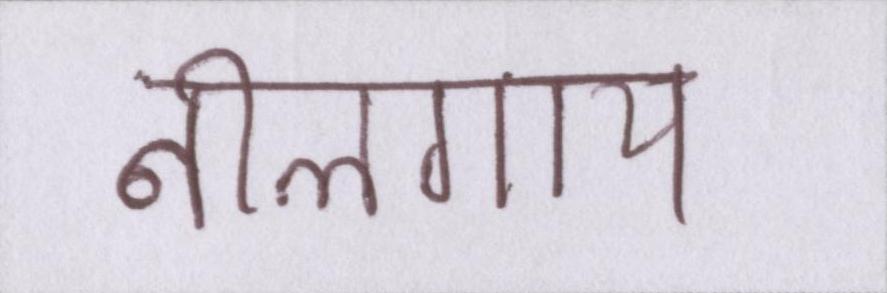 नीलगाय